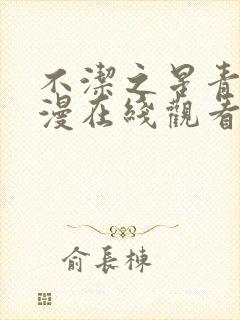 不潔之男青
漫在綫觀看
俞長棟